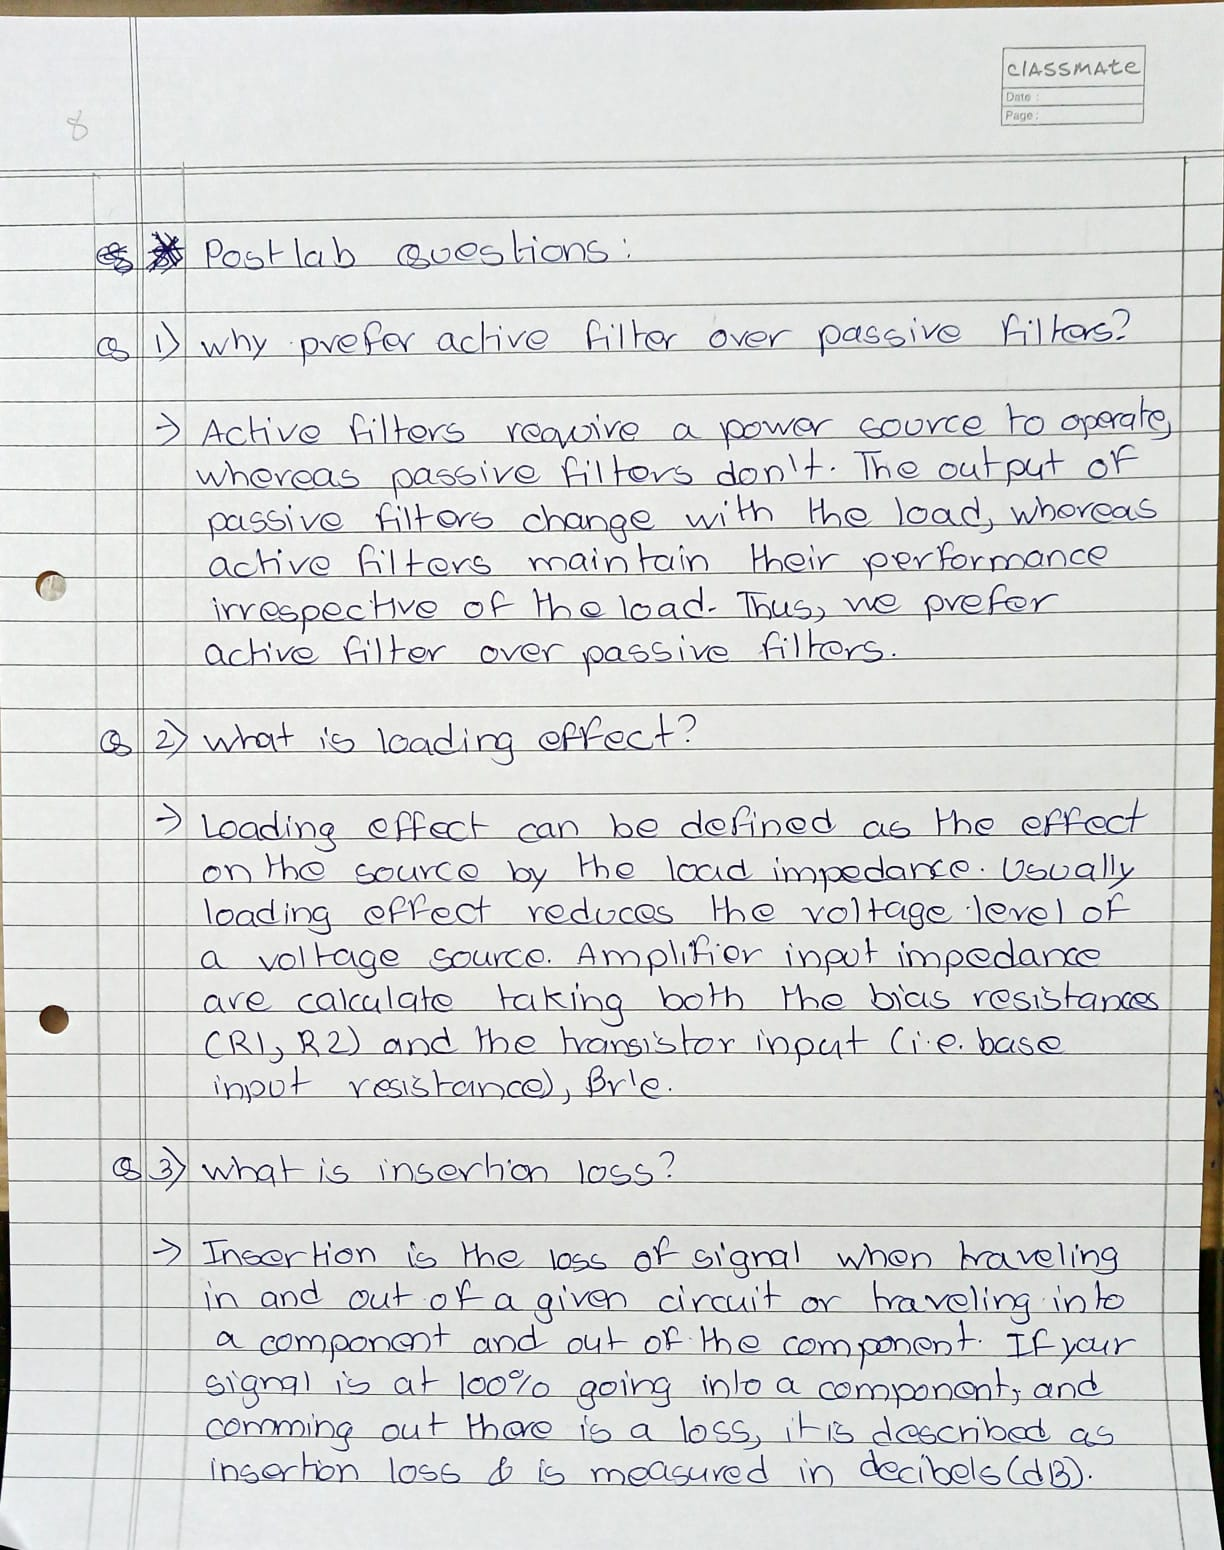 classmate
Date :
Page :
8
Postlab Questions:
Q 1) why prefer active filter over passive filters?
→ Active filters require a power source to operate,
whereas passive filters don't. The output of
passive filters change with the load, whereas
active filters maintain their performance
irrespective of the load. Thus, we prefer
active filter over passive filters.
Q 2) what is loading effect?
→ Loading effect can be defined as the effect
on the source by the load impedance. Usually
loading effect reduces the voltage level of
a voltage source. Amplifier input impedance
are calculate taking both the bias resistances
(R1, R2) and the transistor input (i.e. base
input resistance), Br'e.
Q 3) what is insertion loss?
→ Insertion is the loss of signal when traveling
in and out of a given circuit or traveling into
a component and out of the component. If your
signal is at 100% going into a component, and
comming out there is a loss, it is described as
insertion loss & is measured in decibels (dB).